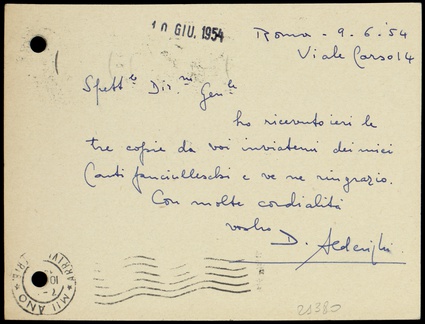 10 GIU. 1954
Roma - 9.6.54
Viale Carso 14
Spett.le Dir.ne Gen.le
ho ricevuto ieri le
tre copie da voi inviatemi dei miei
Canti fanciulleschi e ve ne ringrazio.
Con molte cordialità
vostro D. Alderighi
MILANO
ARRIVI
21380